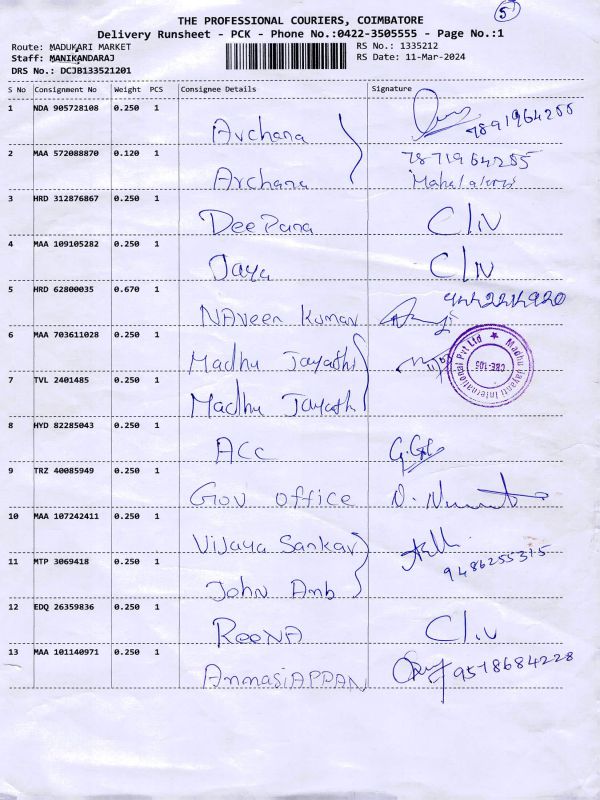 5
THE PROFESSIONAL COURIERS, COIMBATORE
Delivery Runsheet - PCK - Phone No.:0422-3505555 - Page No.:1
Route: MADUKARI MARKET
RS No.: 1335212
Staff: MANIKANDARAJ
RS Date: 11-Mar-2024
DRS No.: DCJB133521201
S No Consignment No Weight PCS Consignee Details Signature
1 NDA 905728108 0.250 1 Archana 7891964255
2 MAA 572088870 0.120 1 Archana 7871964255
3 HRD 312876867 0.250 1 DeePana C/iv
4 MAA 109105282 0.250 1 Jaya C/iv
5 HRD 62800035 0.670 1 NAveen Kumar
6 MAA 703611028 0.250 1 Madhu Jayathi
7 TVL 2401485 0.250 1 Madhu Jayath
Madhu Jayanti International Pvt Ltd
CBE-105
8 HYD 82285043 0.250 1 ACC
9 TRZ 40085949 0.250 1 Gov office
10 MAA 107242411 0.250 1 Vijaya Sankar
11 MTP 3069418 0.250 1 John Amb 9486255315
12 EDQ 26359836 0.250 1 ReeNA C/iv
13 MAA 101140971 0.250 1 AmmasiAPPAN 9578684228